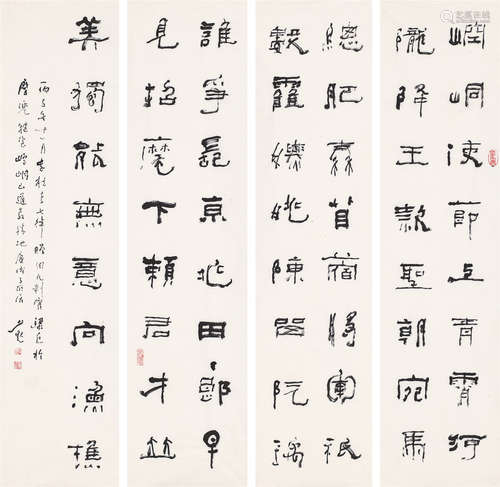 崆峒使節上青霄河
隴降王款聖朝宛馬
總肥春苜蓿將軍祇
數霍嫖姚陳留阮瑀
誰爭長京兆田郎早
見招麾下賴君才竝
美獨能無意向漁樵
丙子年十一月書杜甫七律贈田九判官梁丘於